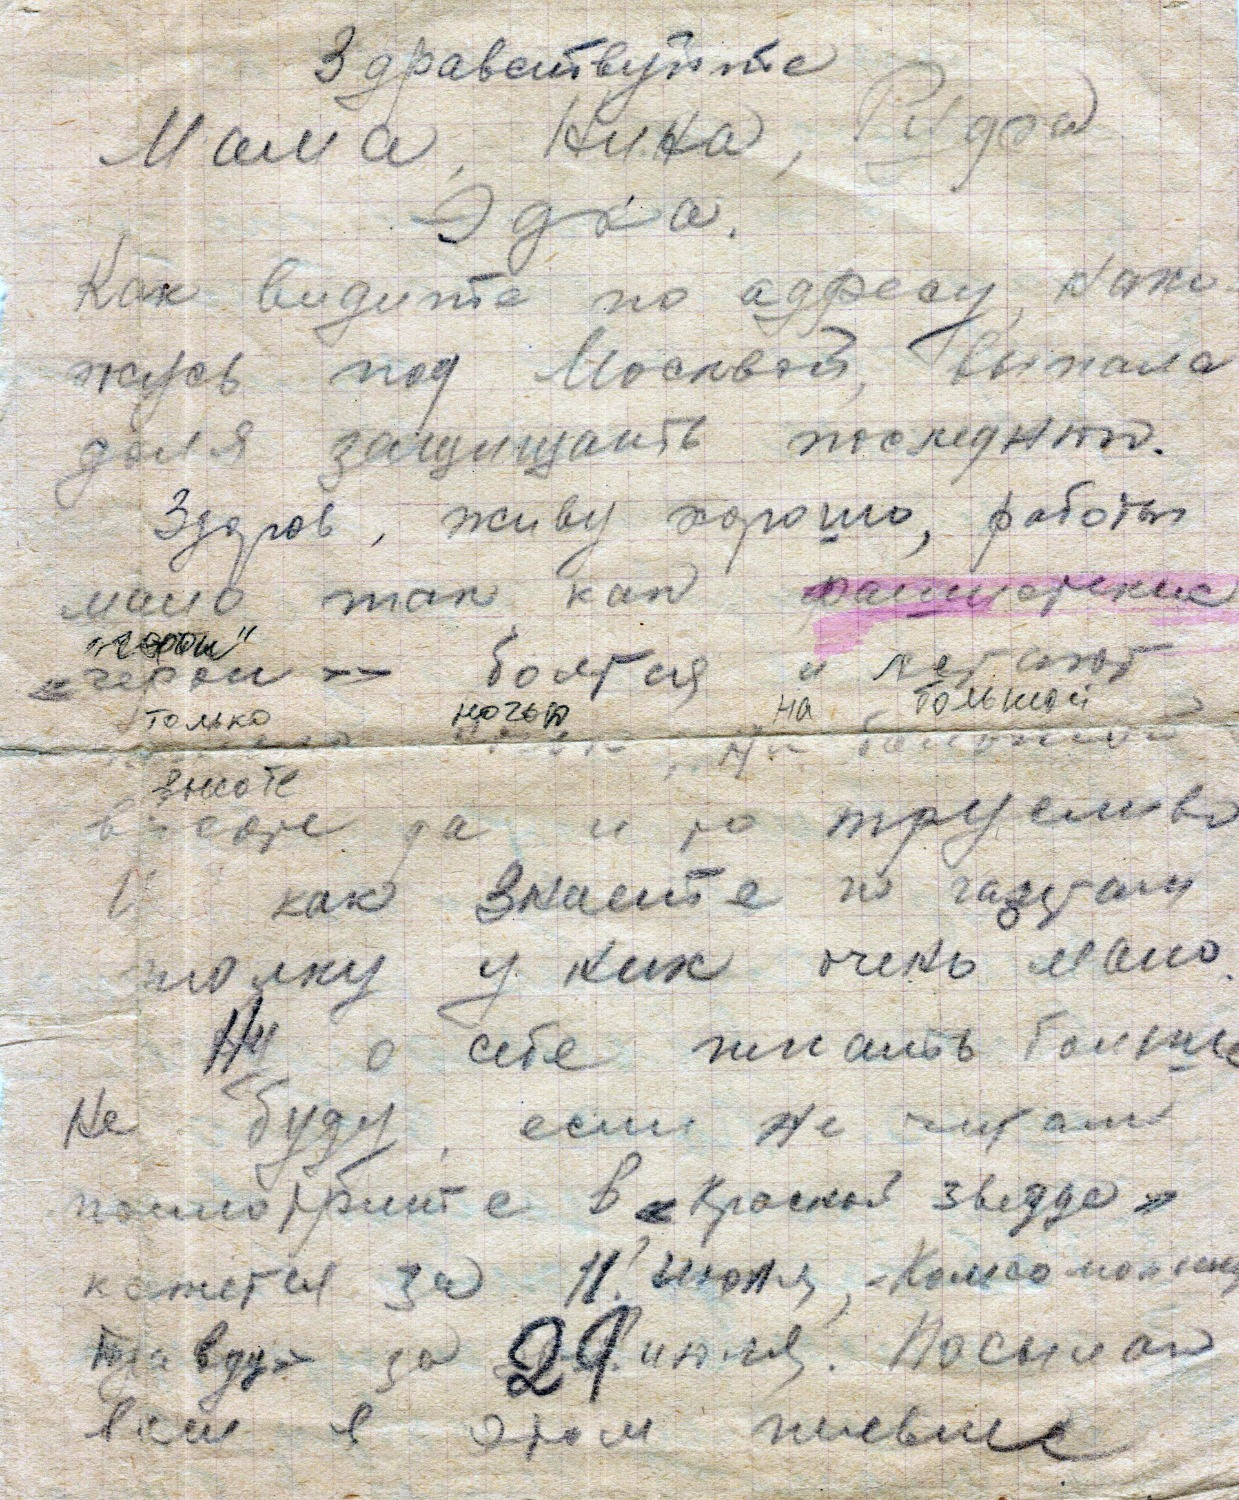 Здравствуйте
Мама, Нина, Рудра
Эдка.
Как видите по адресу, нахо-
жусь под Москвой, выпала
доля защищать последнюю.
Здоров, живу хорошо, работы
мало так как фашистские
"герои"
«герои» боятся и летают
только ночью на большой
на большой
высоте
высоте да и то трусливо
И как знаете по газетам
толку у них очень мало.
Ну о себе писать больше
не буду, если не читали
посмотрите в «Красной звезде»
кажется за 11 июля, Комсомольскую
правду» за 29 июля. Посылаю
вам в этом письме